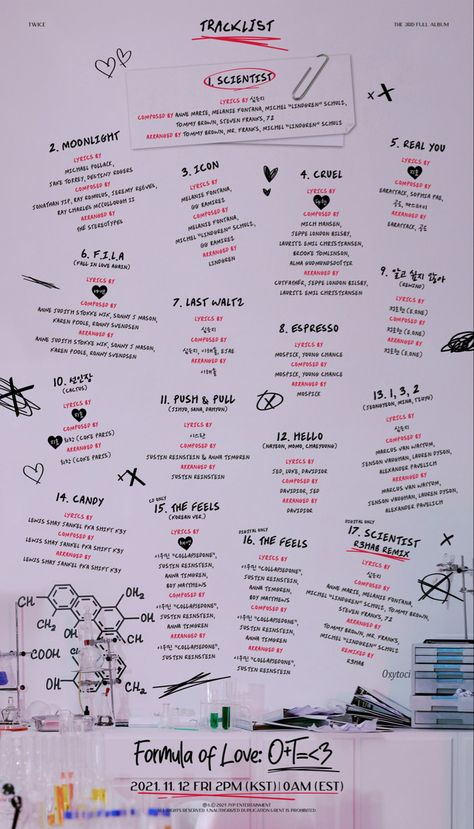 TWICE
TRACKLIST
THE 3RD FULL ALBUM
1. SCIENTIST
LYRICS BY 심은지
COMPOSED BY ANNE MARIE, MELANIE FONTANA, MICHEL "LINDGREN" SCHULZ,
TOMMY BROWN, STEVEN FRANKS, 72
ARRANGED BY TOMMY BROWN, MR. FRANKS, MICHEL "LINDGREN" SCHULZ
2. MOONLIGHT
LYRICS BY
MICHAEL POLLACK,
JAKE TORREY, DESTINY ROGERS
COMPOSED BY
JONATHAN YIP, RAY ROMULUS, JEREMY REEVES,
RAY CHARLES MCCULLOUGH II
ARRANGED BY
THE STEREOTYPES
3. ICON
LYRICS BY
MELANIE FONTANA,
GG RAMIREZ
COMPOSED BY
MELANIE FONTANA,
MICHEL "LINDGREN" SCHULZ,
GG RAMIREZ
ARRANGED BY
LINDGREN
4. CRUEL
LYRICS BY
COMPOSED BY
MICH HANSEN,
JEPPE LONDON BILSBY,
LAURITZ EMIL CHRISTIANSEN,
BROOKE TOMLINSON,
ALMA GUDMUNDSDOTTIR
ARRANGED BY
CUTFATHER, JEPPE LONDON BILSBY,
LAURITZ EMIL CHRISTIANSEN
5. REAL YOU
LYRICS BY
지효
COMPOSED BY
EARATTACK, SOPHIA PAE,
ARRANGED BY
EARATTACK, 공도
6. F.I.L.A
(FALL IN LOVE AGAIN)
LYRICS BY
COMPOSED BY
ANNE JUDITH STOKKE WIK, SONNY J MASON,
KAREN POOLE, RONNY SVENDSEN
ARRANGED BY
ANNE JUDITH STOKKE WIK, SONNY J MASON,
KAREN POOLE, RONNY SVENDSEN
7. LAST WALTZ
LYRICS BY
심은지
COMPOSED BY
심은지, 이해솔, EJAE
ARRANGED BY
이해솔
8. ESPRESSO
LYRICS BY
MOSPICK, YOUNG CHANCE
COMPOSED BY
MOSPICK, YOUNG CHANCE
ARRANGED BY
MOSPICK
9. 알고 싶지 않아
(REWIND)
LYRICS BY
COMPOSED BY
ARRANGED BY
10. 선인장
(CACTUS)
LYRICS BY
지효
COMPOSED BY
ARRANGED BY
11. PUSH & PULL
(JIHYO, SANA, DAHYUN)
LYRICS BY
이스란
COMPOSED BY
JUSTIN REINSTEIN & ANNA TIMGREN
ARRANGED BY
JUSTIN REINSTEIN
12. HELLO
(NAYEON, MOMO, CHAEYOUNG)
LYRICS BY
JED, LUKE, DAVIDIOR
COMPOSED BY
DAVIDIOR, JED
ARRANGED BY
DAVIDIOR
13. 1, 3, 2
(JEONGYEON, MINA, TZUYU)
LYRICS BY
심은지
COMPOSED BY
MARCUS VAN WATTUM,
JENSON VAUGHAN, LAUREN DYSON,
ALEXANDER PAVELICH
ARRANGED BY
MARCUS VAN WATTUM,
JENSON VAUGHAN, LAUREN DYSON,
ALEXANDER PAVELICH
14. CANDY
LYRICS BY
LEWIS SHAY JANKEL PKA SHIFT K3Y
COMPOSED BY
LEWIS SHAY JANKEL PKA SHIFT K3Y
ARRANGED BY
LEWIS SHAY JANKEL PKA SHIFT K3Y
CD ONLY
15. THE FEELS
(KOREAN VER.)
LYRICS BY
이우민 "COLLAPSEDONE",
JUSTIN REINSTEIN,
ANNA TIMGREN,
BOY MATTHEWS
COMPOSED BY
이우민 "COLLAPSEDONE",
JUSTIN REINSTEIN,
ANNA TIMGREN
ARRANGED BY
이우민 "COLLAPSEDONE",
JUSTIN REINSTEIN
DIGITAL ONLY
16. THE FEELS
LYRICS BY
이우민 "COLLAPSEDONE",
JUSTIN REINSTEIN,
ANNA TIMGREN,
BOY MATTHEWS
COMPOSED BY
이우민 "COLLAPSEDONE",
JUSTIN REINSTEIN,
ANNA TIMGREN
ARRANGED BY
이우민 "COLLAPSEDONE",
JUSTIN REINSTEIN
DIGITAL ONLY
17. SCIENTIST
R3HAB REMIX
LYRICS BY
심은지
COMPOSED BY
ANNE MARIE, MELANIE FONTANA,
MICHEL "LINDGREN" SCHULZ, TOMMY BROWN,
STEVEN FRANKS, 72
ARRANGED BY
TOMMY BROWN, MR. FRANKS,
MICHEL "LINDGREN" SCHULZ
REMIXED BY
R3HAB
CH
OH
OH
CH₃
COOH
O
OH
CH₃
OH
Oxytoci
Formula of Love: O+T=<3
2021. 11. 12 FRI 2PM (KST) | 0AM (EST)
℗&©2021 JYP ENTERTAINMENT.
ALL RIGHTS RESERVED. UNAUTHORIZED DUPLICATION IS NOT PROHIBITED.